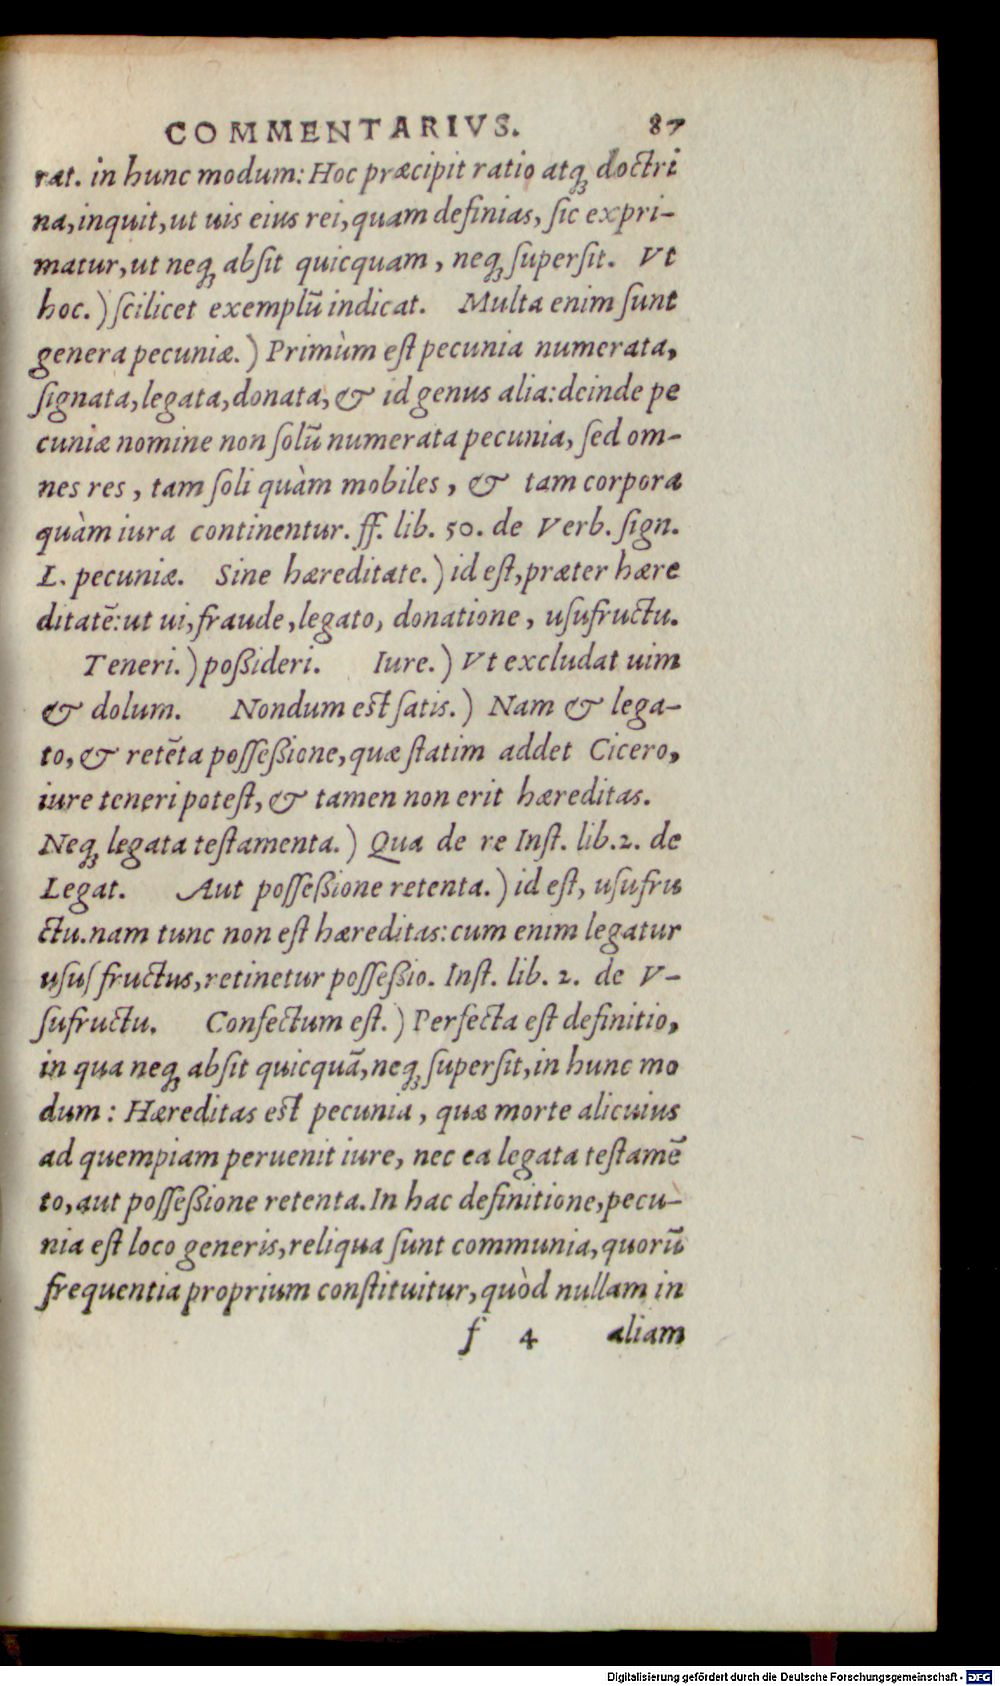 COMMENTARIVS. 87
rat. in hunc modum: Hoc præcipit ratio atqꝫ doctri
na, inquit, ut uis eius rei, quam definias, ſic expri-
matur, ut neqꝫ abſit quicquam, neqꝫ ſuperſit. Vt
hoc.) ſcilicet exemplũ indicat. Multa enim ſunt
genera pecuniæ.) Primùm eſt pecunia numerata,
ſignata, legata, donata, & id genus alia: deinde pe
cuniæ nomine non ſolũ numerata pecunia, ſed om-
nes res, tam ſoli quàm mobiles, & tam corpora
quàm iura continentur. ff. lib. 50. de Verb. ſign.
L. pecuniæ. Sine hæreditate.) id eſt, præter hære
ditatẽ: ut ui, fraude, legato, donatione, uſufructu.
Teneri.) poßideri. Iure.) Vt excludat uim
& dolum. Nondum eſt ſatis.) Nam & lega-
to, & retẽta poſſeßione, quæ ſtatim addet Cicero,
iure teneri poteſt, & tamen non erit hæreditas.
Neqꝫ legata teſtamenta.) Qua de re Inſt. lib. 2. de
Legat. Aut poſſeßione retenta.) id eſt, uſufru
ctu. nam tunc non eſt hæreditas: cum enim legatur
uſuſfructus, retinetur poſſeßio. Inſt. lib. 2. de V-
ſufructu. Confectum eſt.) Perfecta eſt definitio,
in qua neqꝫ abſit quicquã, neqꝫ ſuperſit, in hunc mo
dum: Hæreditas eſt pecunia, quæ morte alicuius
ad quempiam peruenit iure, nec ea legata teſtamẽ
to, aut poſſeßione retenta. In hac definitione, pecu-
nia eſt loco generis, reliqua ſunt communia, quorũ
frequentia proprium conſtituitur, quòd nullam in
f 4 aliam
Digitalisierung gefördert durch die Deutsche Forschungsgemeinschaft - DFG